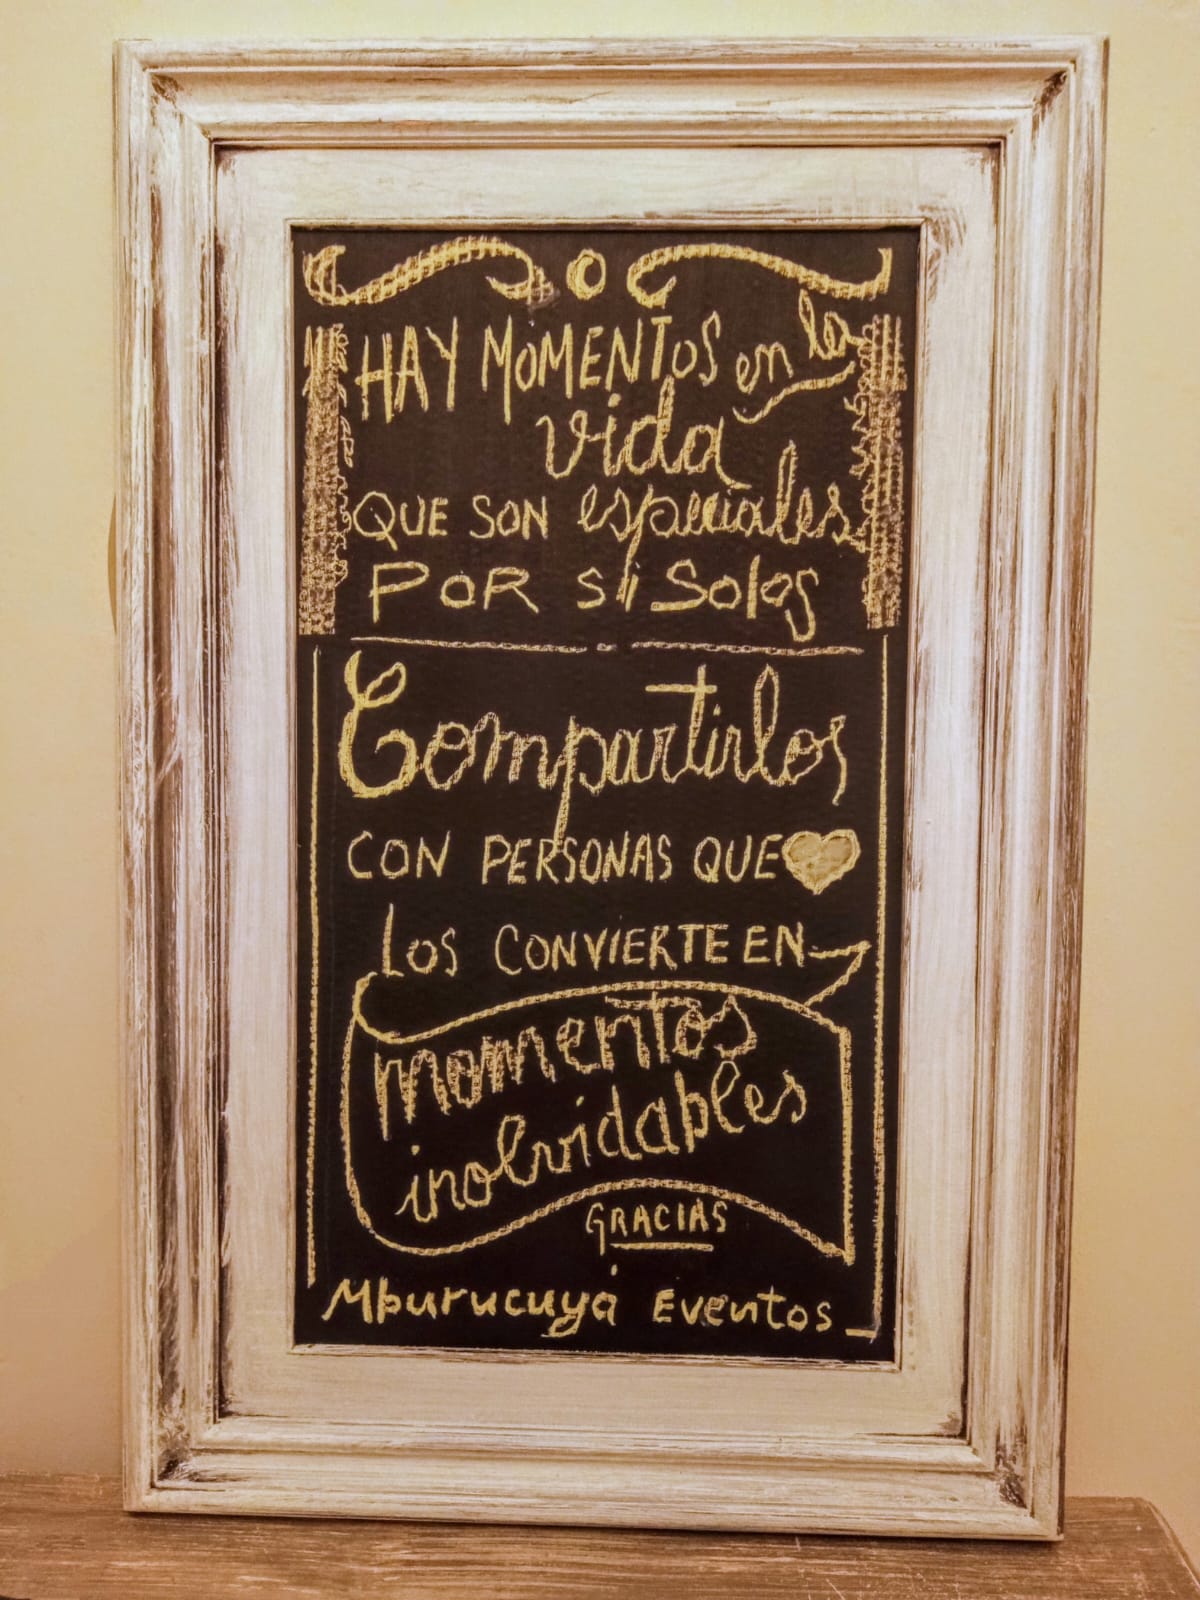 HAY MOMENTOS en la
vida
QUE SON especiales
POR Sí Solos
Compartirlos
CON PERSONAS QUE
LOS CONVIERTE EN
momentos
inolvidables
GRACIAS
Mburucuyá Eventos